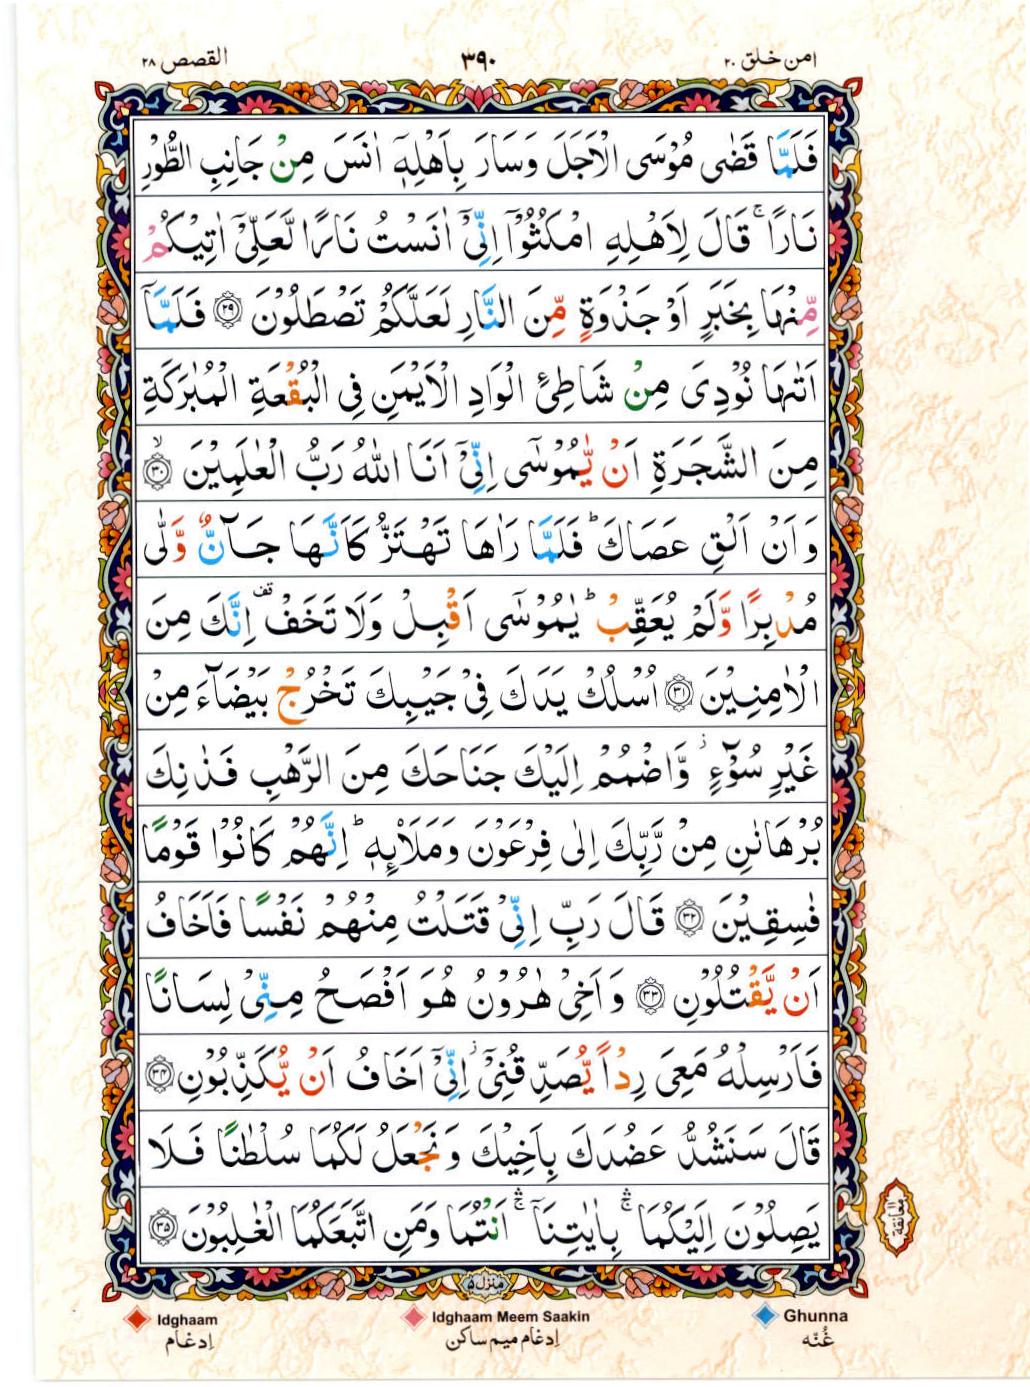 امن خلق ۲۰
۳۹۰
القصص ۲۸
فَلَمَّا قَضٰى مُوْسَى الْاَجَلَ وَسَارَ بِاَهْلِهٖۤ اٰنَسَ مِنْ جَانِبِ الطُّوْرِ
نَارًا ۚ قَالَ لِاَهْلِهِ امْكُثُوْۤا اِنِّیْۤ اٰنَسْتُ نَارًا لَّعَلِّیْۤ اٰتِیْكُمْ
مِّنْهَا بِخَبَرٍ اَوْ جَذْوَةٍ مِّنَ النَّارِ لَعَلَّكُمْ تَصْطَلُوْنَ ﴿۲۹﴾ فَلَمَّاۤ
اَتٰىهَا نُوْدِیَ مِنْ شَاطِئِ الْوَادِ الْاَیْمَنِ فِی الْبُقْعَةِ الْمُبٰرَكَةِ
مِنَ الشَّجَرَةِ اَنْ یّٰمُوْسٰۤى اِنِّیْۤ اَنَا اللّٰهُ رَبُّ الْعٰلَمِیْنَ ﴿ۙ۳۰﴾
وَ اَنْ اَلْقِ عَصَاكَ ؕ فَلَمَّا رَاٰهَا تَهْتَزُّ كَاَنَّهَا جَآنٌّ وَّلّٰى
مُدْبِرًا وَّلَمْ یُعَقِّبْ ؕ یٰمُوْسٰۤى اَقْبِلْ وَلَا تَخَفْ قف اِنَّكَ مِنَ
الْاٰمِنِیْنَ ﴿۳۱﴾ اُسْلُكْ یَدَكَ فِیْ جَیْبِكَ تَخْرُجْ بَیْضَآءَ مِنْ
غَیْرِ سُوْٓءٍ ؗ وَّاضْمُمْ اِلَیْكَ جَنَاحَكَ مِنَ الرَّهْبِ فَذٰنِكَ
بُرْهَانٰنِ مِنْ رَّبِّكَ اِلٰى فِرْعَوْنَ وَمَلَاۡئِهٖ ؕ اِنَّهُمْ كَانُوْا قَوْمًا
فٰسِقِیْنَ ﴿۳۲﴾ قَالَ رَبِّ اِنِّیْ قَتَلْتُ مِنْهُمْ نَفْسًا فَاَخَافُ
اَنْ یَّقْتُلُوْنِ ﴿۳۳﴾ وَ اَخِیْ هٰرُوْنُ هُوَ اَفْصَحُ مِنِّیْ لِسَانًا
فَاَرْسِلْهُ مَعِیَ رِدْاً یُّصَدِّقُنِیْۤ ؗ اِنِّیْۤ اَخَافُ اَنْ یُّكَذِّبُوْنِ ﴿۳۴﴾
قَالَ سَنَشُدُّ عَضُدَكَ بِاَخِیْكَ وَ نَجْعَلُ لَكُمَا سُلْطٰنًا فَلَا
یَصِلُوْنَ اِلَیْكُمَا ۛۚ بِاٰیٰتِنَاۤ ۛۚ اَنْتُمَا وَمَنِ اتَّبَعَكُمَا الْغٰلِبُوْنَ ﴿۳۵﴾
معانقة
منزل ۵
Idghaam
Idghaam Meem Saakin
Ghunna
اِدغام
اِدغام میم ساکن
غُنّه